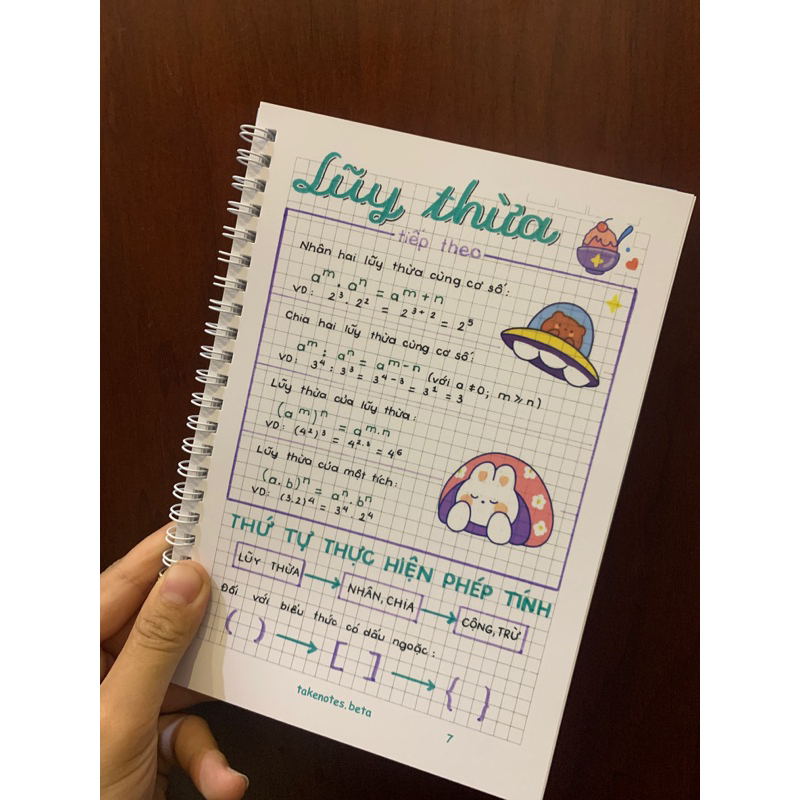 Lũy thừa
tiếp theo
Nhân hai lũy thừa cùng cơ số:
aᵐ . aⁿ = aᵐ⁺ⁿ
VD: 2³ . 2² = 2³⁺² = 2⁵
Chia hai lũy thừa cùng cơ số:
aᵐ : aⁿ = aᵐ⁻ⁿ (với a ≠ 0; m ⩾ n)
VD: 3⁴ : 3³ = 3⁴⁻³ = 3¹ = 3
Lũy thừa của lũy thừa:
(aᵐ)ⁿ = aᵐ·ⁿ
VD: (4²)³ = 4²·³ = 4⁶
Lũy thừa của một tích:
(a.b)ⁿ = aⁿ.bⁿ
VD: (3.2)⁴ = 3⁴ . 2⁴
THỨ TỰ THỰC HIỆN PHÉP TÍNH
LŨY THỪA → NHÂN, CHIA → CỘNG, TRỪ
Đối với biểu thức có dấu ngoặc:
( ) → [ ] → { }
takenotes.beta
7